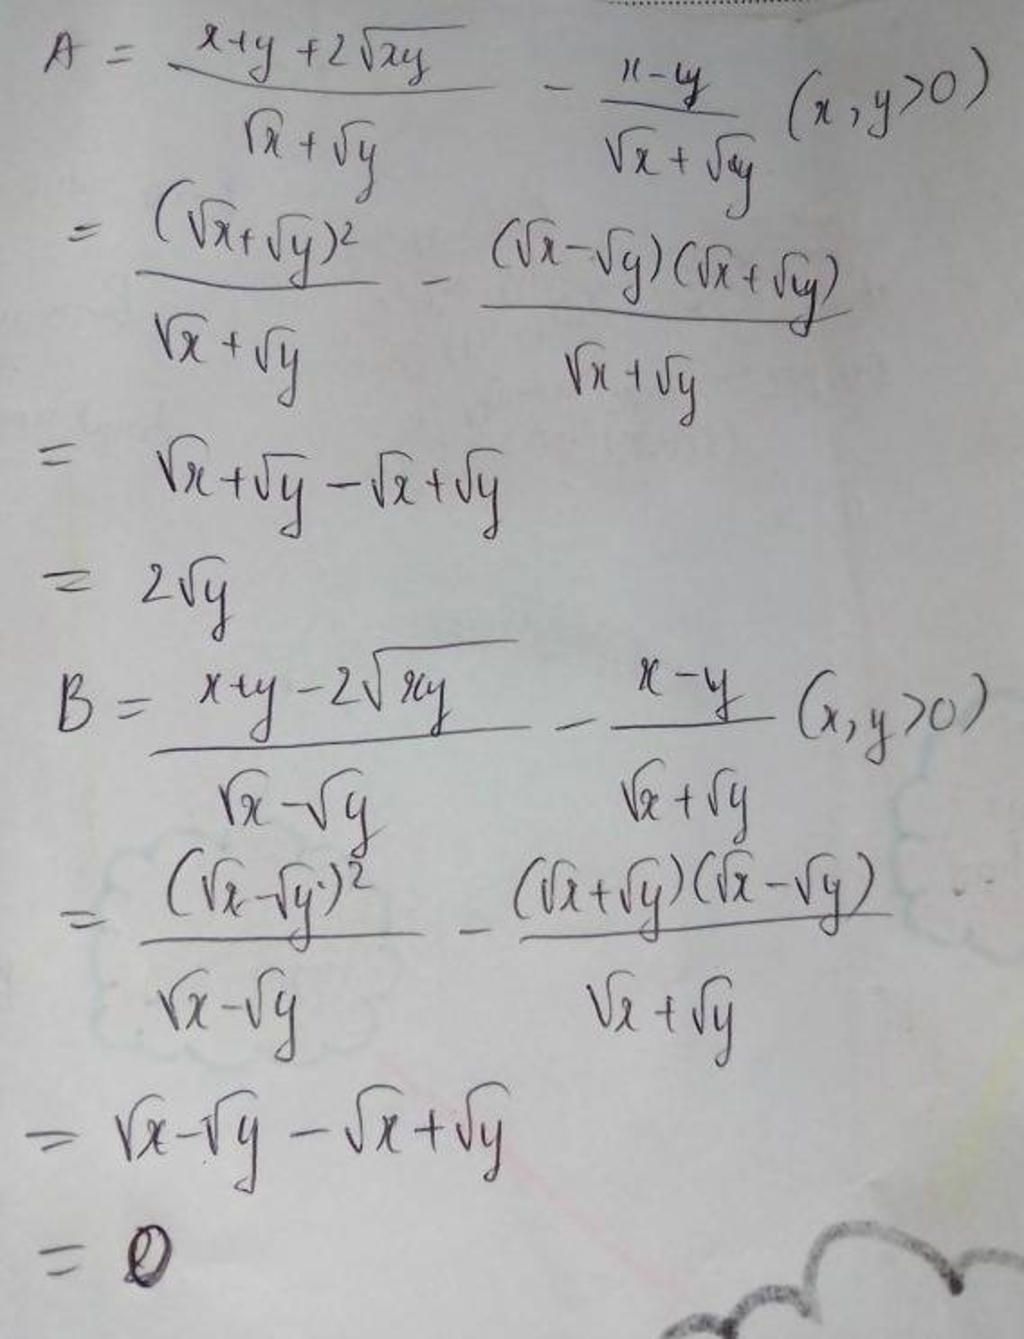 A = (x+y+2√xy)/(√x+√y) - (x-y)/(√x+√y) (x,y>0)
= (√x+√y)²/(√x+√y) - (√x-√y)(√x+√y)/(√x+√y)
= √x+√y-√x+√y
= 2√y
B = (x+y-2√xy)/(√x-√y) - (x-y)/(√x+√y) (x,y>0)
= (√x-√y)²/(√x-√y) - (√x+√y)(√x-√y)/(√x+√y)
= √x-√y-√x+√y
= 0